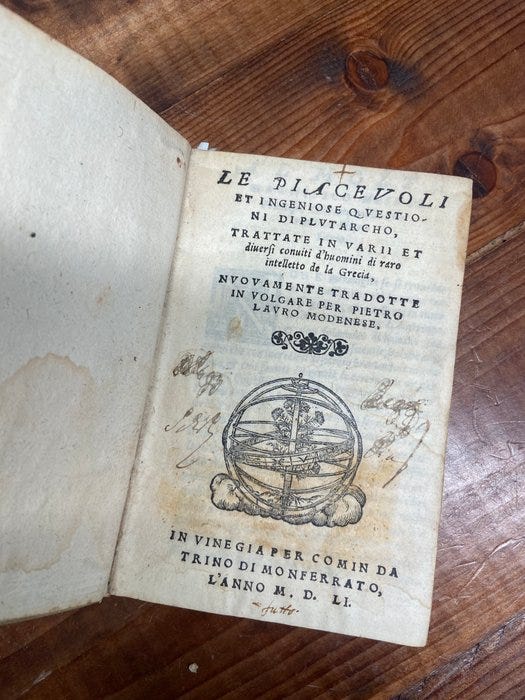 LE PIACEVOLI
ET INGENIOSE QVESTIO-
NI DI PLVTARCHO,
TRATTATE IN VARII ET
diuersi conuiti d'huomini di raro
intelletto de la Grecia,
NVOVAMENTE TRADOTTE
IN VOLGARE PER PIETRO
LAVRO MODENESE.
IN VINEGIA PER COMIN DA
TRINO DI MONFERRATO,
L'ANNO M. D. LI.